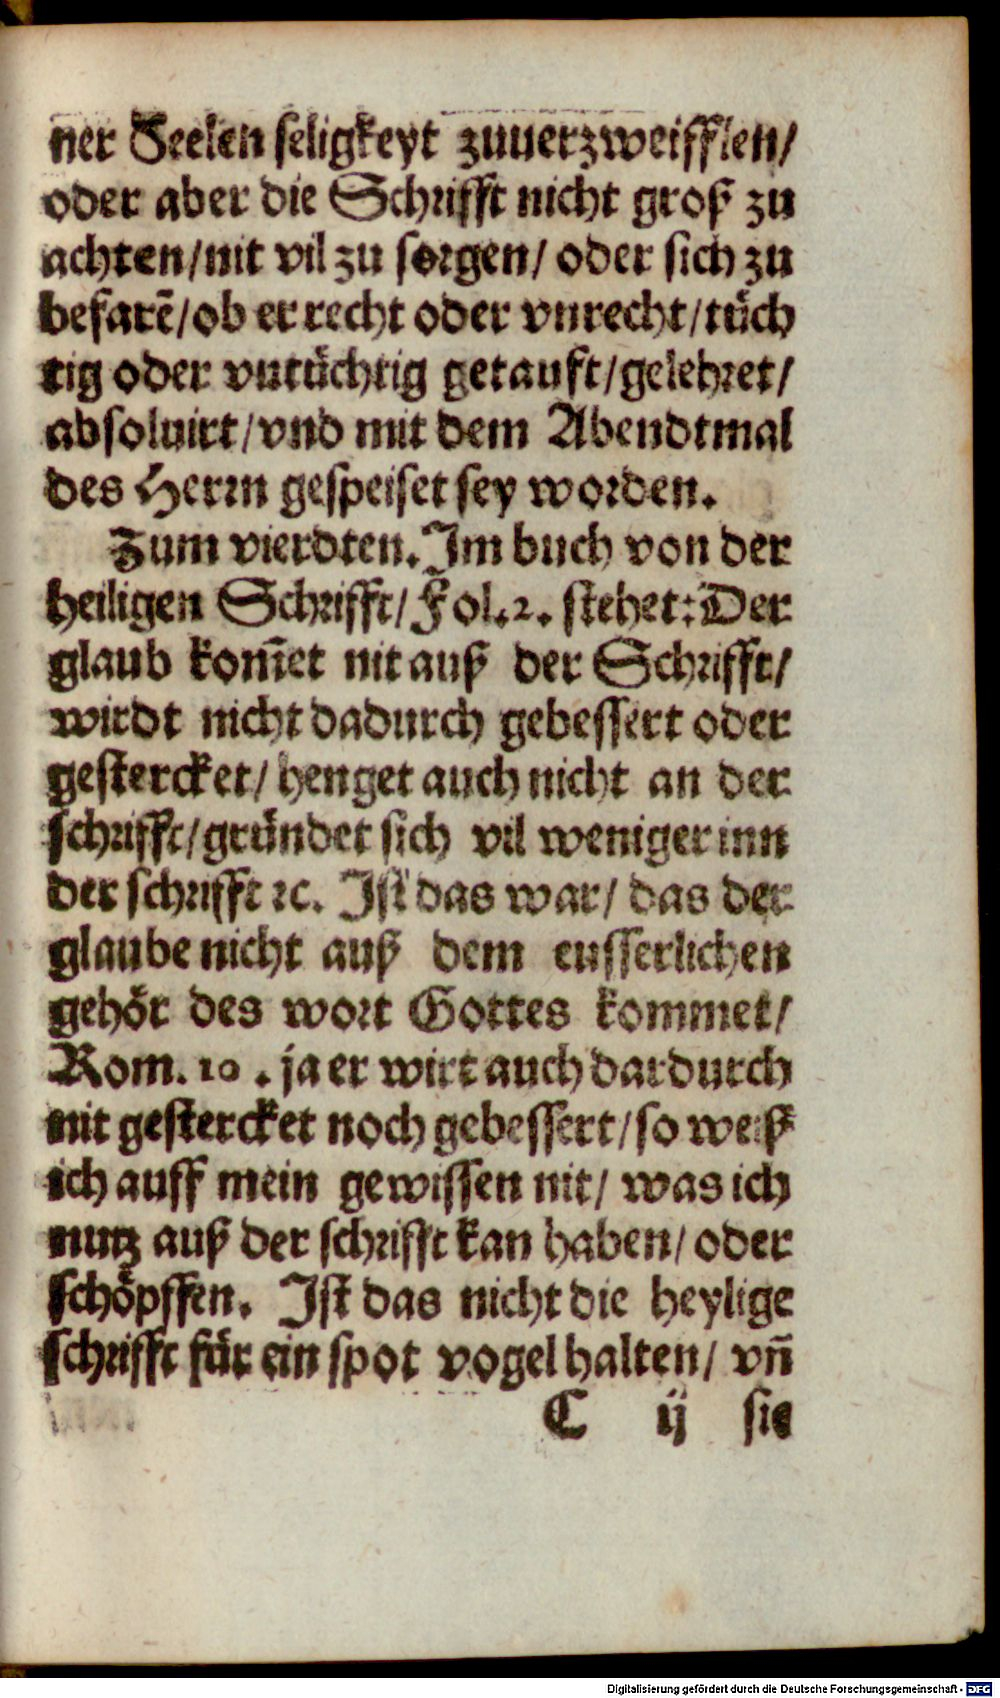 ner Seelen seligkeyt zuuerzweifflen/
oder aber die Schrifft nicht groß zu
achten/nit vil zu sorgen/ oder sich zu
befarẽ/ob er recht oder vnrecht/tüch
tig oder vntüchtig getauft/gelehret/
absoluirt/vnd mit dem Abendtmal
des Herrn gespeiset sey worden.
Zum vierdten. Im buch von der
heiligen Schrifft/ Fol.2. stehet: Der
glaub kom̃et nit auß der Schrifft/
wirdt nicht dadurch gebessert oder
gestercket/ henget auch nicht an der
schrifft/gründet sich vil weniger inn
der schrifft ꝛc. Ist das war/ das der
glaube nicht auß dem eusserlichen
gehör des wort Gottes kommet/
Rom. 10. ja er wirt auch dardurch
nit gestercket noch gebessert/so weiß
ich auff mein gewissen nit/ was ich
nutz auß der schrifft kan haben/ oder
schöpffen. Ist das nicht die heylige
schrifft für ein spot vogel halten/ vñ
C ij sie
Digitalisierung gefördert durch die Deutsche Forschungsgemeinschaft - DFG